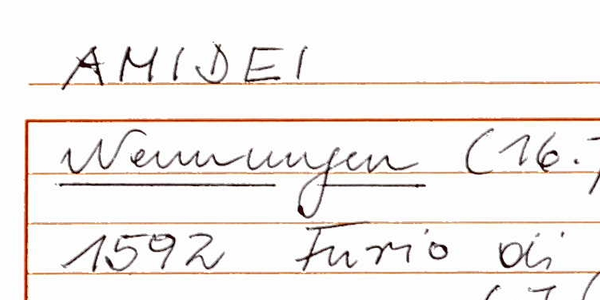 AMIDEI
Nennungen (16.
1592 Furio di